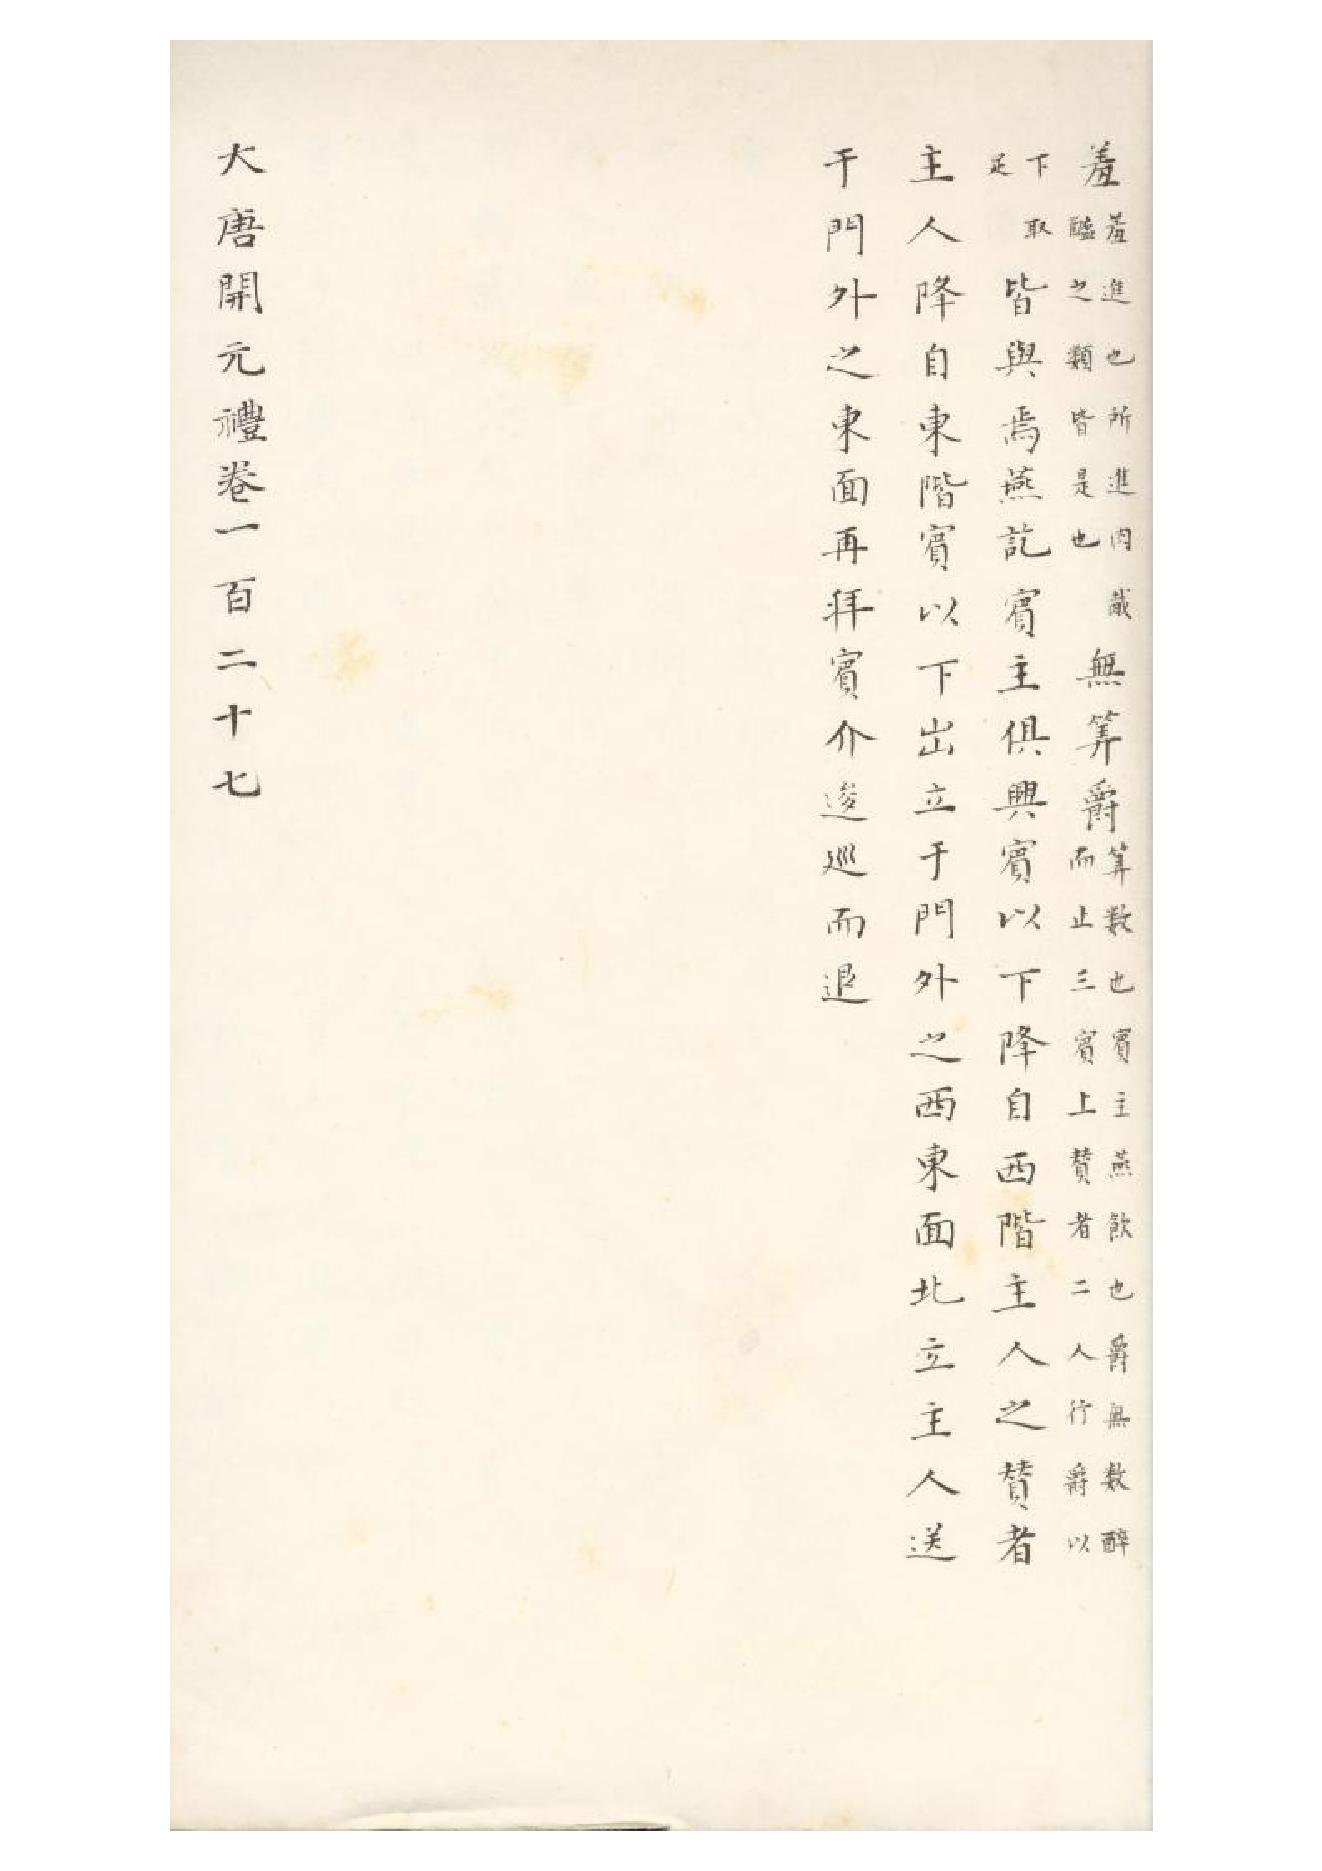 羞羞進也所進肉胾醢之類皆是也無筭爵筭數也賓主燕飲也爵無數醉而止三賓上贊者二人行爵以
下取足皆與焉燕訖賓主俱興賓以下降自西階主人之贊者
主人降自東階賓以下出立于門外之西東面北立主人送
于門外之東面再拜賓介逡巡而退
大唐開元禮卷一百二十七